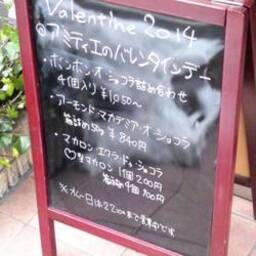 Valentine 2014
◎アミティエのバレンタインデー
・ボンボン・オ・ショコラ詰め合わせ
4個入り ¥1050〜
・アーモンド・マカダミア・オ・ショコラ
箱詰め50g ¥840円
・マカロン・エクラ・ドゥ・ショコラ
♡型マカロン 1個 200円
箱詰め 4個 900円
※火〜日は22:00まで営業中です